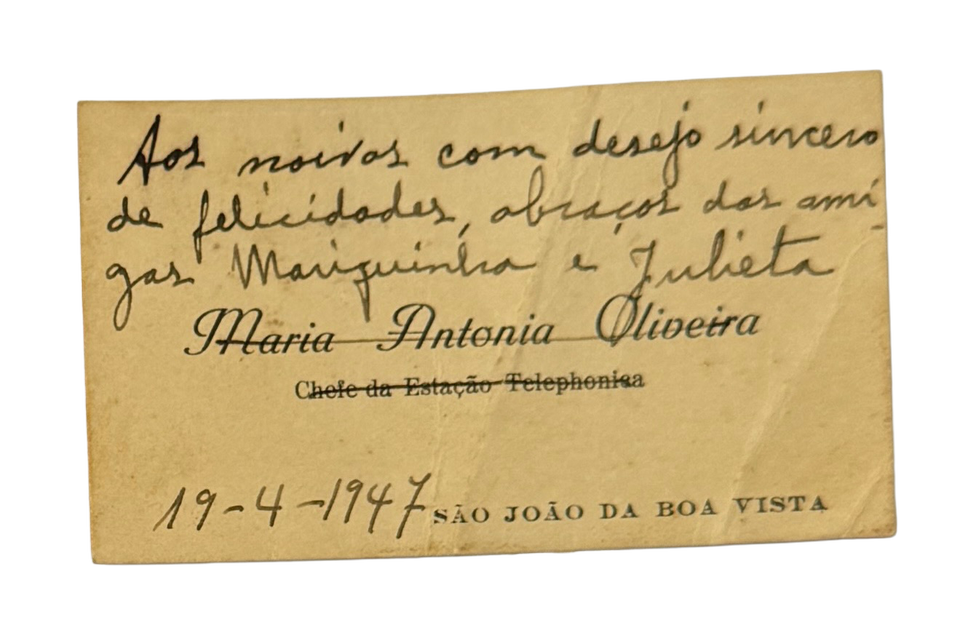 Aos noivos com desejo sincero
de felicidades, abraços das ami-
gas Mariquinha e Julieta
Maria Antonia Oliveira
Chefe da Estação Telephonica
19-4-1947 SÃO JOÃO DA BOA VISTA